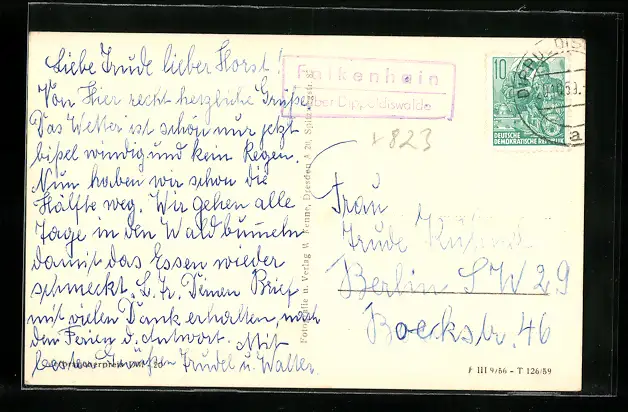 Liebe Trude lieber Horst!
Von Hier recht herzliche Grüße
Das Wetter ist schön nur jetzt
bißel windig und kein Regen.
Nun haben wir schon die
Hälfte weg. Wir gehen alle
Tage in den Wald bummeln
damit das Essen wieder
schmeckt. L. Tr. Deinen Brief
mit vielen Dank erhalten, nach
den Ferien d. Antwort. Mit
besten Grüßen Trudel u. Walter.
Falkenhain
über Dippoldiswalde
10
DEUTSCHE
DEMOKRATISCHE REPUBLIK
a
v 823
Frau
Trude
Berlin SW 29
Bockstr. 46
Fotografie u. Verlag W. Fenne, Dresden A 20,
F III 9/56 - T 126/59